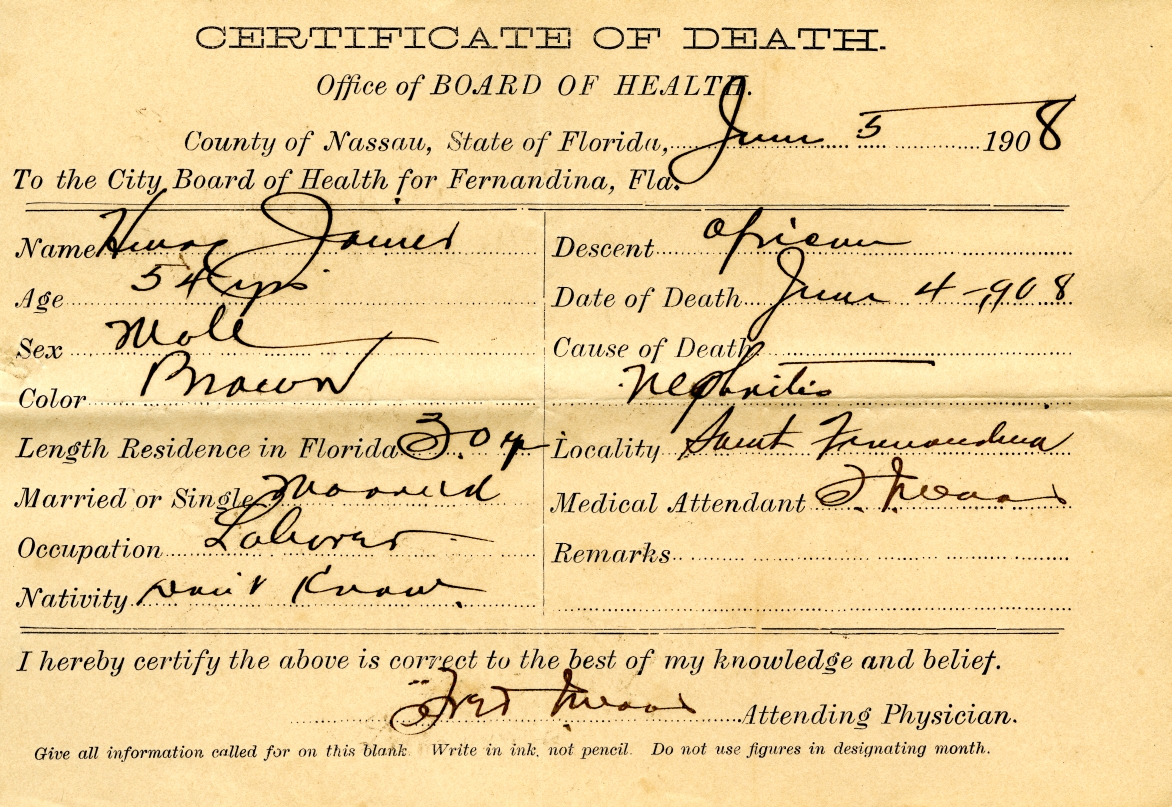 CERTIFICATE OF DEATH.
Office of BOARD OF HEALTH.
County of Nassau, State of Florida, June 5 1908
To the City Board of Health for Fernandina, Fla.
Name James
Age 54 yrs
Sex Male
Color Brown
Length Residence in Florida 30 y
Married or Single Married
Occupation Laborer
Nativity Don't Know
Descent African
Date of Death June 4 - 908
Cause of Death
Nephritis
Locality Fernandina
Medical Attendant
Remarks
I hereby certify the above is correct to the best of my knowledge and belief.
Attending Physician.
Give all information called for on this blank. Write in ink, not pencil. Do not use figures in designating month.